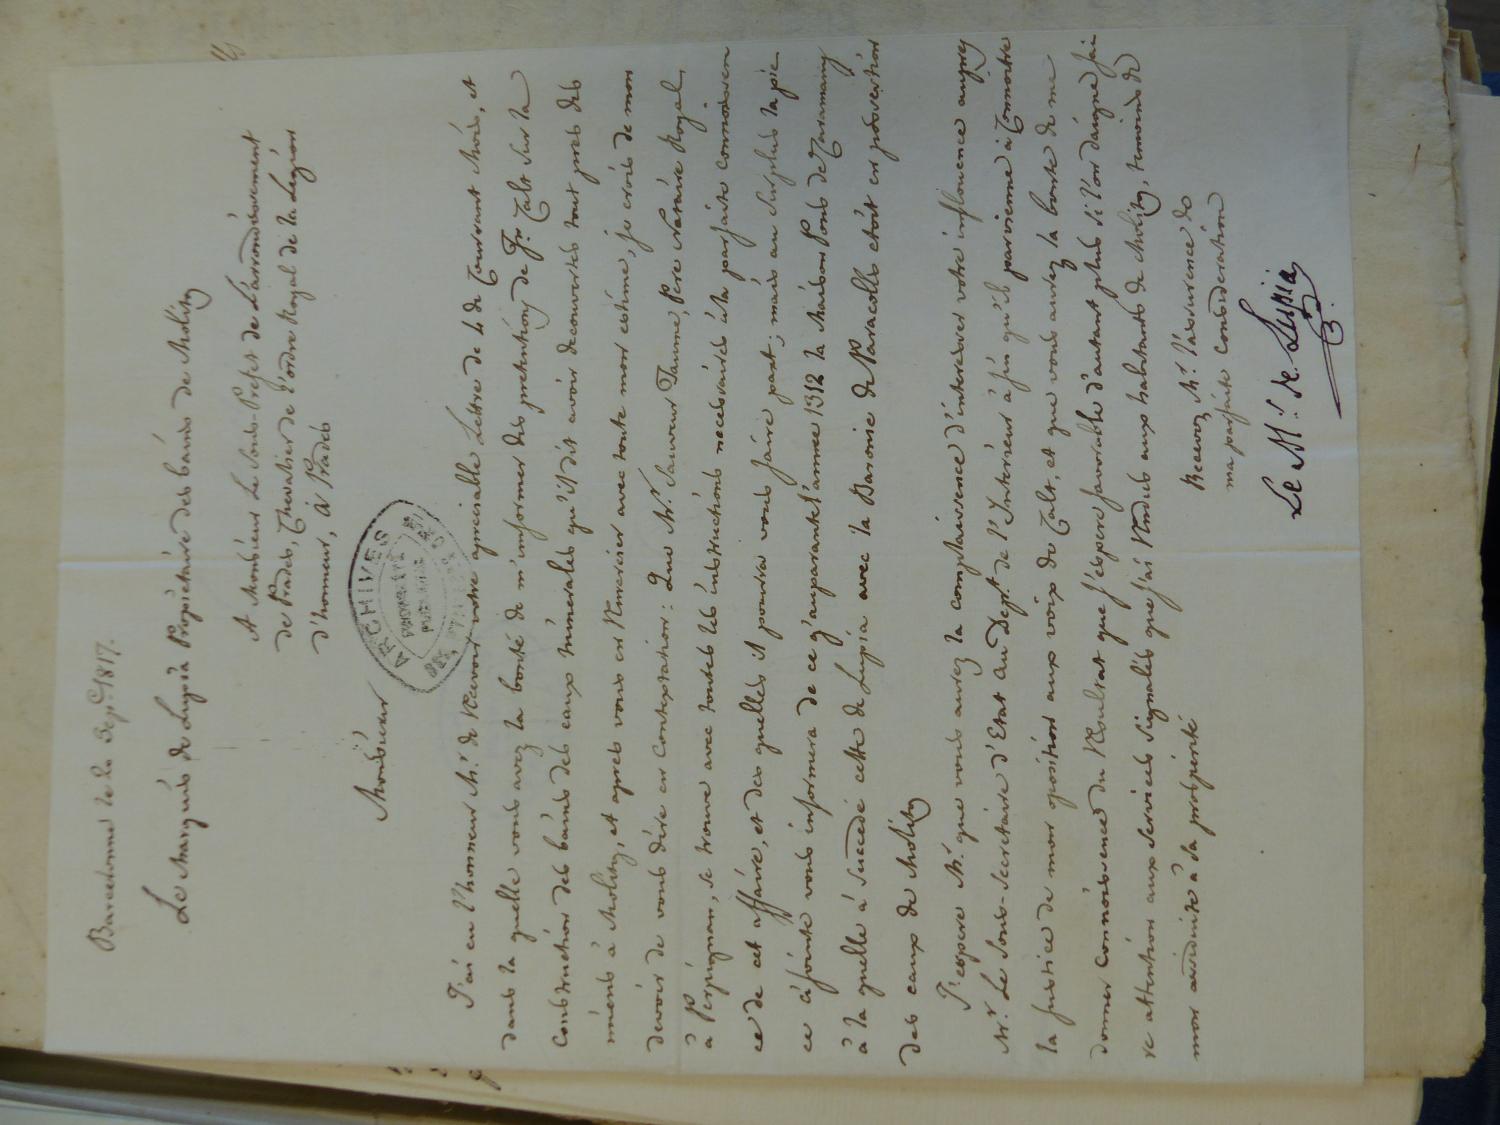 Barcelonne le 20 Sep.e 1817.
Le Marquis de Llupià Propriétaire des bains de Molitg
A Monsieur Le Sous-Prefet de L'arrondissement
de Prades, Chevalier de l'ordre Royal de la Legion
d'honneur, à Prades
Monsieur
ARCHIVES
J'ai eu l'honneur Mr. de recevoir votre apreciable Lettre de 4 de Courrant Mois, et
dans la quelle vous avez la bonté de m'informer des pretentions de Fr. Calt sur la
Construction des bains des eaux minerales qu'il dit avoir decouvertes tout pres des
miens à Molitg, et apres vous en remercier avec toute mon estime, je crois de mon
devoir de vous dire en Contextation: Que Mr. Sauveur Jaume, Pere Notaire Royal
à Perpignan, se trouve avec toutes les instructions necessaires à la parfaite connoissen
ce de cet affaire, et des quelles il pourrai vous faire part; mais au surplus la pie
ce ci jointe vous informera de ce q'auparant l'annee 1312 la Maison Pons de Caramany
à la quelle à succedé cette de Llupia avec la Baronie de Paracolls etoit en possestion
des eaux de Molitg
J'espere Mr. que vous aurez la complaisence d'interesser votre influence aupres
Mr. Le Sous-Secretaire d'Etat au Dept. de l'Interieur à fin qu'il parvienne à Connoitre
la justice de mon oposition aux voix de Calt, et que vous aurez la bonte de me
donner Connoissence du Resultat que j'espere favorable d'autant plus si l'on daigne fai
re attention aux services signalés que j'ai rendus aux habitants de Molitg, temoins de
mon assiduité à sa prosperité
Recevez Mr. l'assurence de
ma parfaite Consideration
Le M.is de Llupia